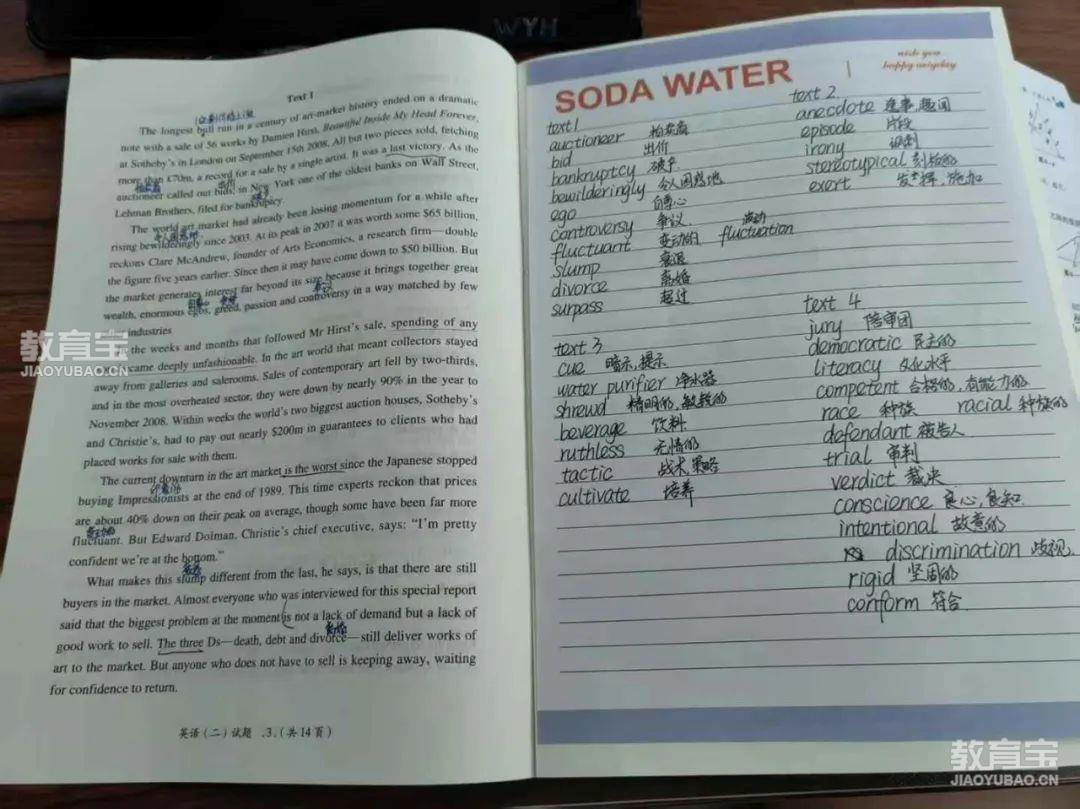 WYH
Text 1
The longest bull run in a century of art-market history ended on a dramatic
note with a sale of 56 works by Damien Hirst, Beautiful Inside My Head Forever,
at Sotheby's in London on September 15th 2008. All but two pieces sold, fetching
more than £70m, a record for a sale by a single artist. It was a last victory. As the
拍卖商 出价 破产
auctioneer called out bids, in New York one of the oldest banks on Wall Street,
Lehman Brothers, filed for bankruptcy.
The world art market had already been losing momentum for a while after
令人困惑地
rising bewilderingly since 2003. At its peak in 2007 it was worth some $65 billion,
reckons Clare McAndrew, founder of Arts Economics, a research firm—double
the figure five years earlier. Since then it may have come down to $50 billion. But
the market generates interest far beyond its size because it brings together great
争议
wealth, enormous egos, greed, passion and controversy in a way matched by few
industries
the weeks and months that followed Mr Hirst's sale, spending of any
came deeply unfashionable. In the art world that meant collectors stayed
away from galleries and salerooms. Sales of contemporary art fell by two-thirds,
and in the most overheated sector, they were down by nearly 90% in the year to
November 2008. Within weeks the world's two biggest auction houses, Sotheby's
and Christie's, had to pay out nearly $200m in guarantees to clients who had
placed works for sale with them.
The current downturn in the art market is the worst since the Japanese stopped
印象派
buying Impressionists at the end of 1989. This time experts reckon that prices
are about 40% down on their peak on average, though some have been far more
变动的
fluctuant. But Edward Dolman, Christie's chief executive, says: "I'm pretty
confident we're at the bottom."
衰退
What makes this slump different from the last, he says, is that there are still
buyers in the market. Almost everyone who was interviewed for this special report
said that the biggest problem at the moment is not a lack of demand but a lack of
离婚
good work to sell. The three Ds—death, debt and divorce—still deliver works of
art to the market. But anyone who does not have to sell is keeping away, waiting
for confidence to return.
英语(二)试题 .3.(共14页)
SODA WATER
wish you
happy everyday
text1
auctioneer 拍卖商
bid 出价
bankruptcy 破产
bewilderingly 令人困惑地
ego 自尊心
controversy 争议
fluctuant 变动的 fluctuation 波动
slump 衰退
divorce 离婚
surpass 超过
text 2
anecdote 轶事,趣闻
episode 片段
irony 讽刺
stereotypical 刻板的
exert 发挥,施加
text 3
cue 暗示,提示
water purifier 净水器
shrewd 精明的,敏锐的
beverage 饮料
ruthless 无情的
tactic 战术,策略
cultivate 培养
text 4
jury 陪审团
democratic 民主的
literacy 文化水平
competent 合格的,有能力的
race 种族 racial 种族的
defendant 被告人
trial 审判
verdict 裁决
conscience 良心,良知
intentional 故意的
discrimination 歧视
rigid 坚固的
conform 符合
教育宝
JIAOYUBAO.CN
教育宝
JIAOYUBAO.CN